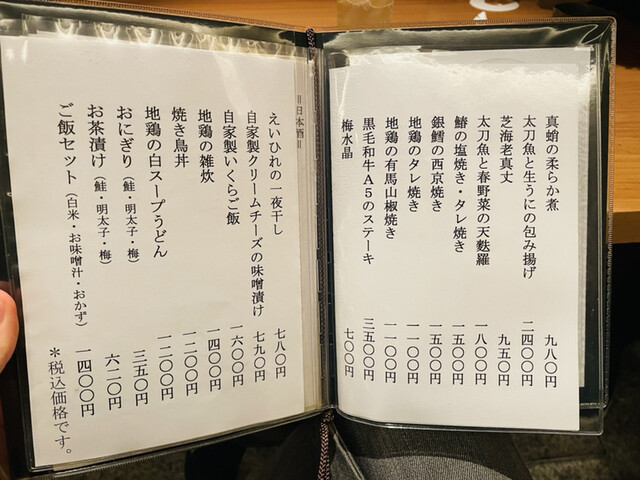 真蛸の柔らか煮 九八〇円
太刀魚と生うにの包み揚げ 二四〇〇円
芝海老真丈 九五〇円
太刀魚と春野菜の天麩羅 一八〇〇円
鰆の塩焼き・タレ焼き 一五〇〇円
銀鱈の西京焼き 一五〇〇円
地鶏のタレ焼き 一一〇〇円
地鶏の有馬山椒焼き 一一〇〇円
黒毛和牛A5のステーキ 三五〇〇円
梅水晶 七〇〇円
=日本酒=
えいひれの一夜干し 七八〇円
自家製クリームチーズの味噌漬け 七九〇円
自家製いくらご飯 一六〇〇円
地鶏の雑炊 一四〇〇円
焼き鳥丼 一二〇〇円
地鶏の白スープうどん 一二〇〇円
おにぎり(鮭・明太子・梅) 三五〇円
お茶漬け(鮭・明太子・梅) 六二〇円
ご飯セット(白米・お味噌汁・おかず) 一四〇〇円
*税込価格です。